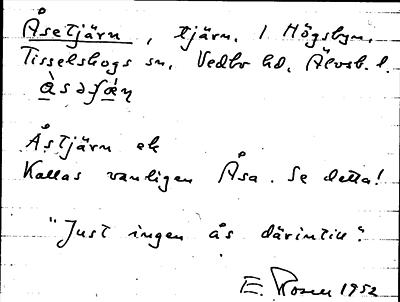 Åsetjärn, tjärn, 1 Högsbyn,
Tisselskogs sn, Vedbo hd, Älvsb. l.
Åstjärn ek
Kallas vanligen Åsa. Se detta!
"Just ingen ås därintill".
E. Rosell 1952